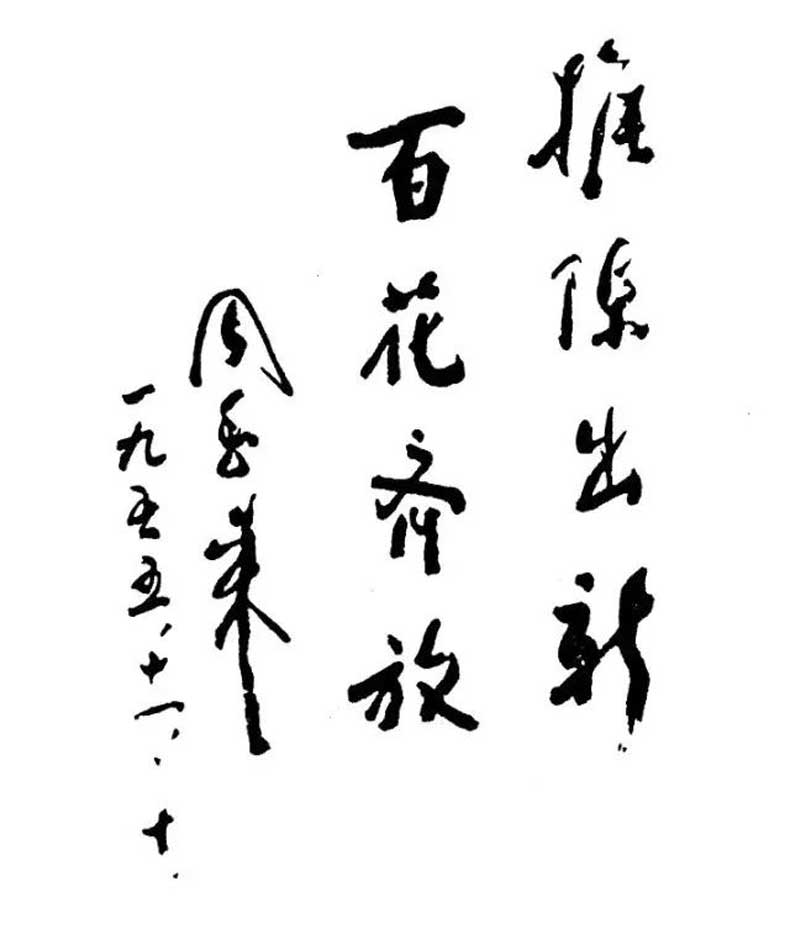 推陈出新
百花齐放
周恩来
一九五五、十一、十、